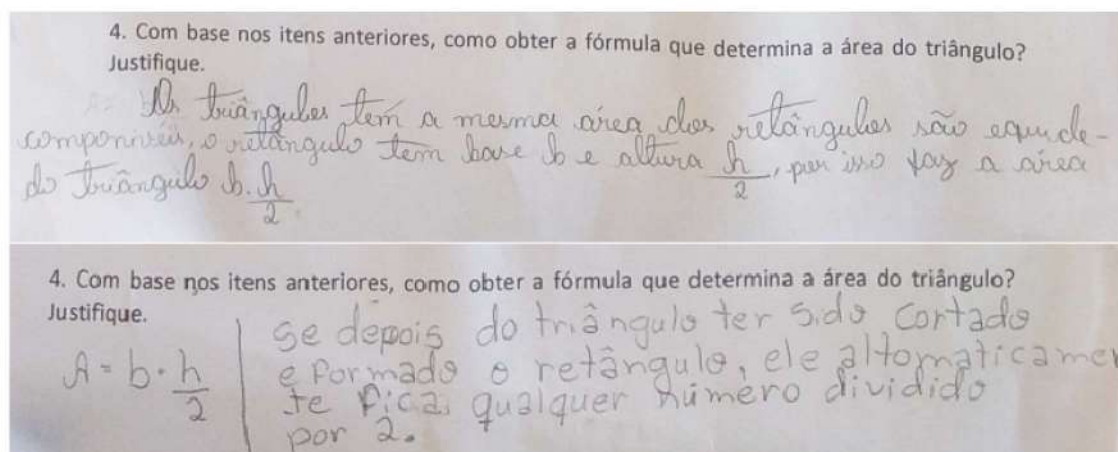 4. Com base nos itens anteriores, como obter a fórmula que determina a área do triângulo?
Justifique.
Os triângulos tem a mesma área dos retângulos são equide-
componiveis, o retângulo tem base b e altura h/2, por isso faz a area
do triângulo b.h/2
4. Com base nos itens anteriores, como obter a fórmula que determina a área do triângulo?
Justifique.
A = b · h/2
se depois do triângulo ter sido cortado
e formado o retângulo, ele altomaticamen
te fica, qualquer número dividido
por 2.